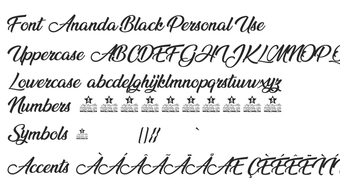 Font Ananda Black Personal Use
Uppercase ABCDEFGHIJKLMNOPQ
Lowercase abcdefghijklmnopqrstuvwxyz
Numbers
Symbols
Accents ÀÁÂÃÄÅÆÇÈÉÊËÌÍ